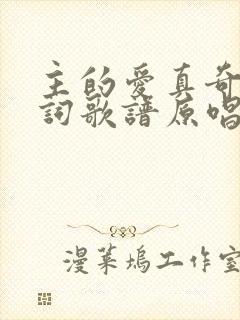 主的愛真奇
詞歌譜原唱
漫葉塢工作室